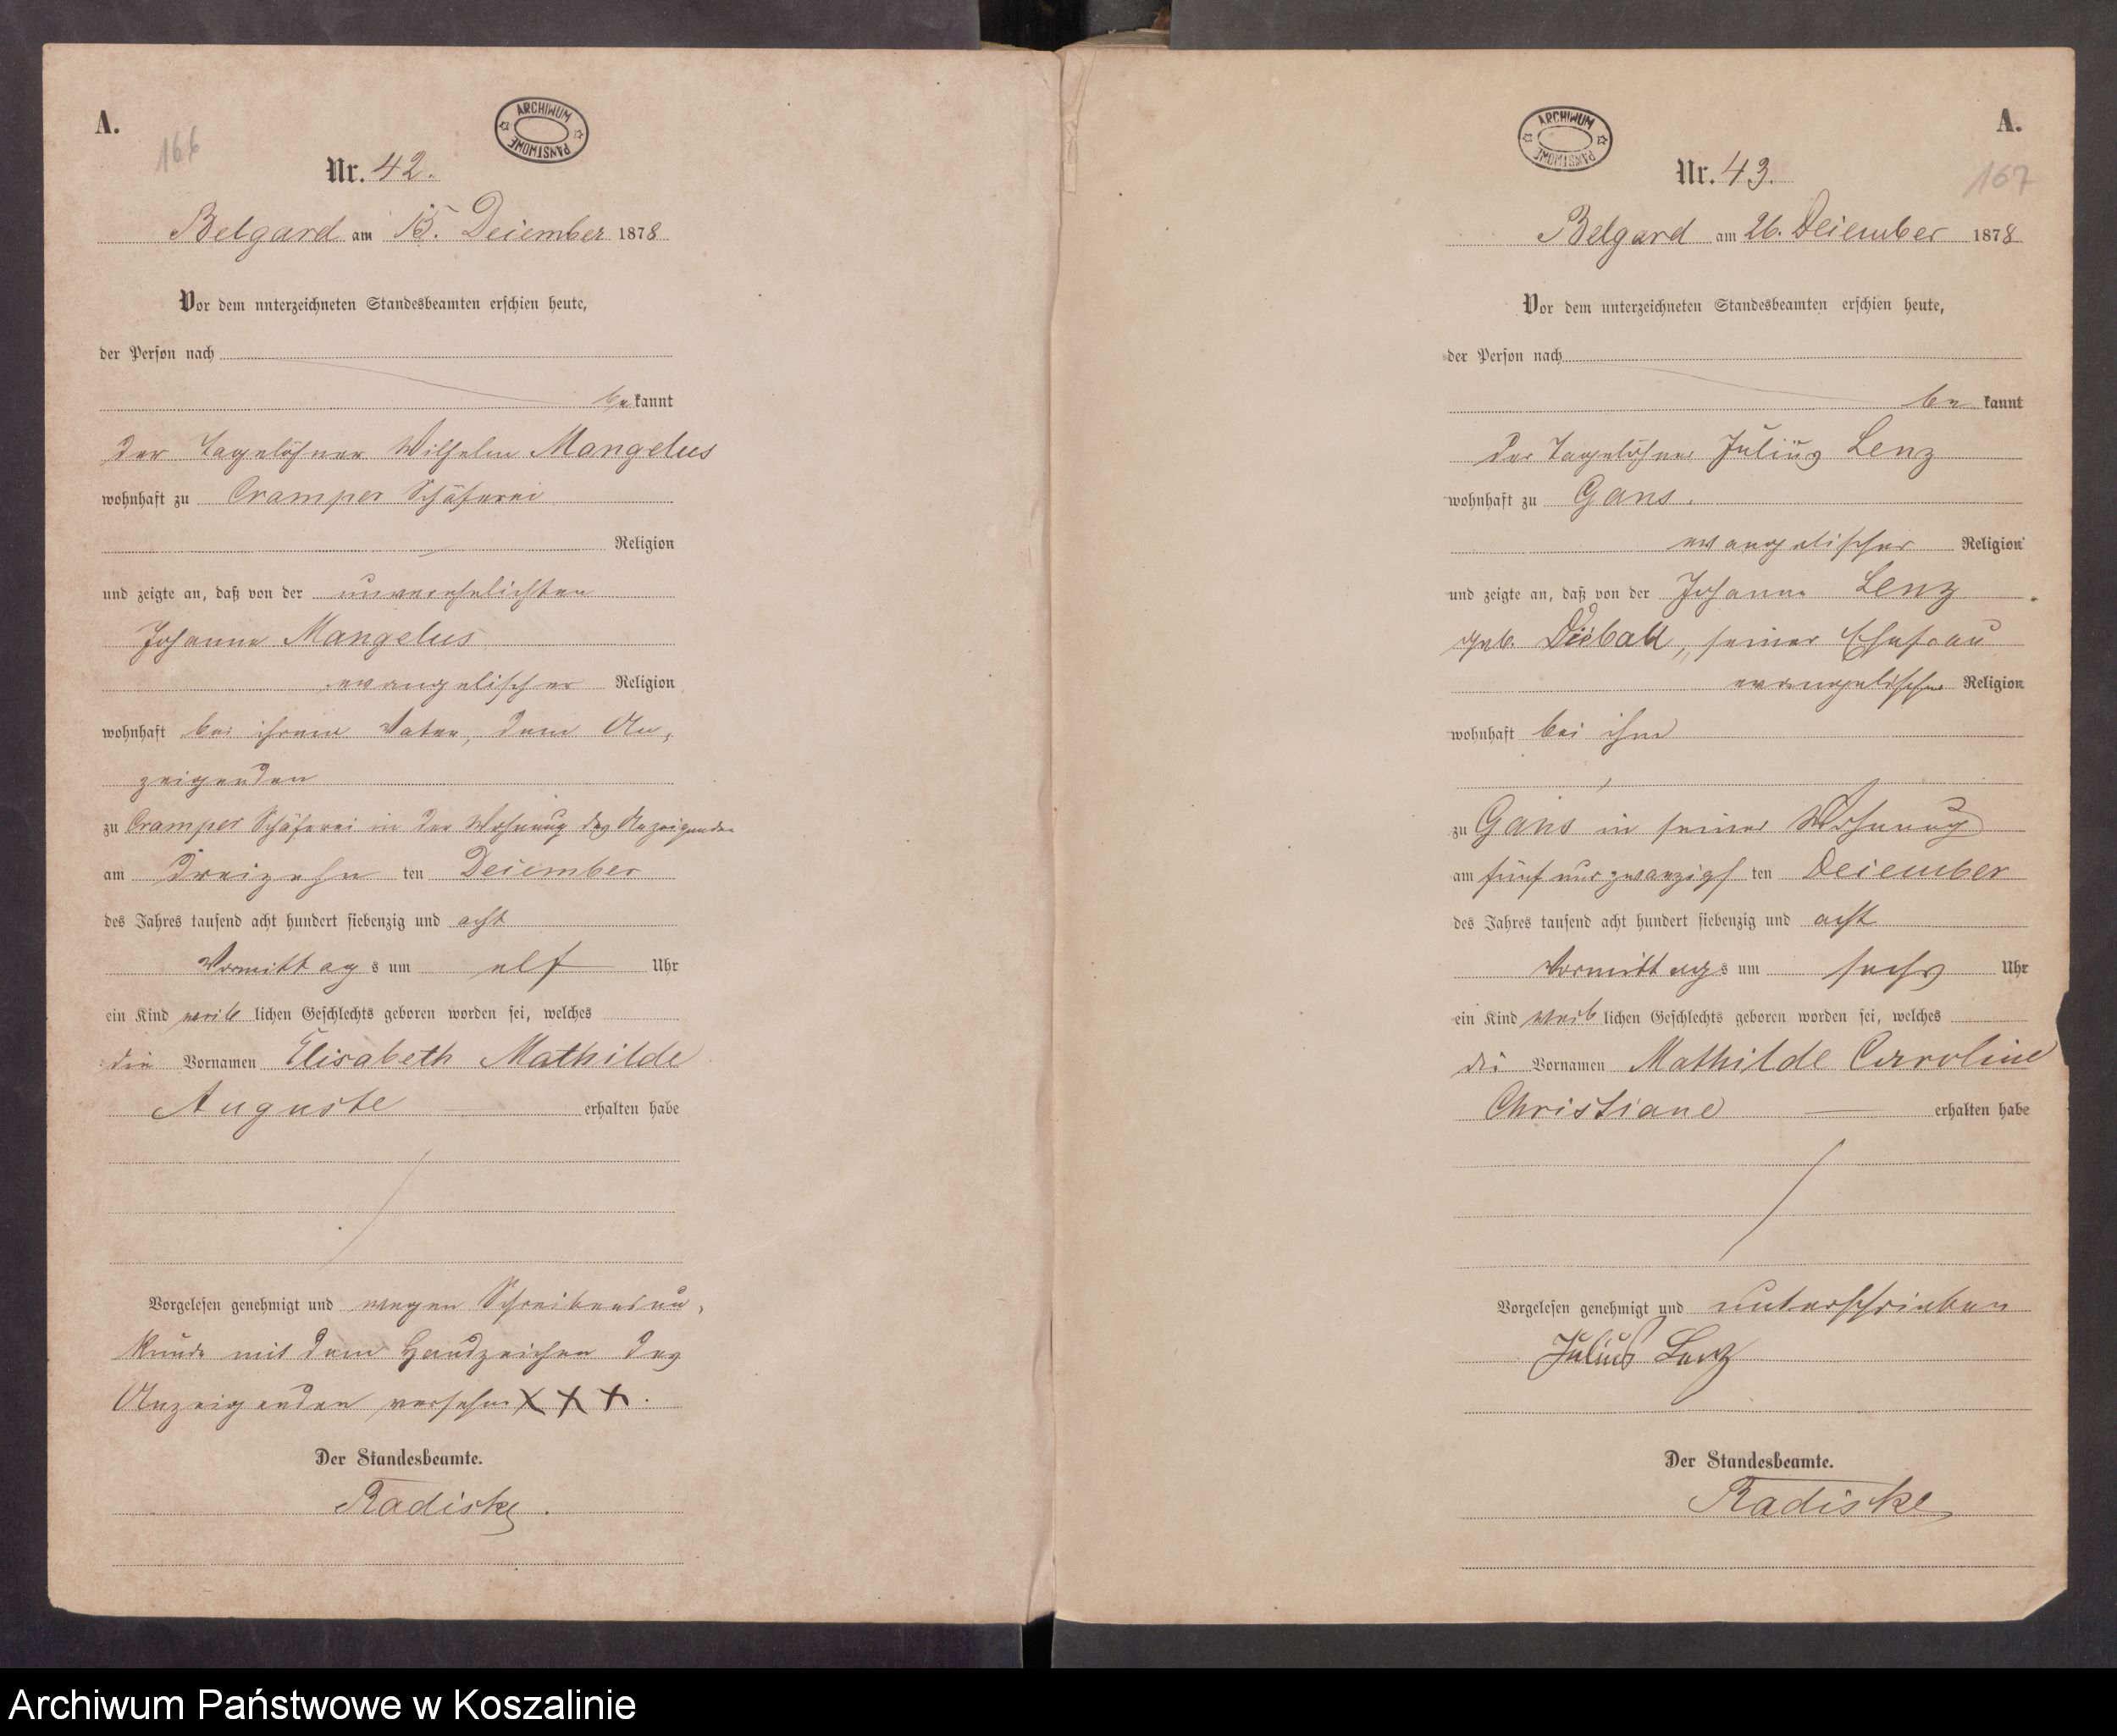 A.
166
ARCHIWUM PAŃSTWOWE
Nr. 42.
Belgard am 15. December 1878
Vor dem unterzeichneten Standesbeamten erschien heute,
der Person nach
be kannt
der Tagelöhner Wilhelm Mangelus
wohnhaft zu Cramper Schäferei
Religion
und zeigte an, daß von der unverehelichten
Johanne Mangelus
evangelischer Religion
wohnhaft bei ihrem Vater, dem An-
zeigenden
zu Cramper Schäferei in der Wohnung des Anzeigenden
am dreizehn ten December
des Jahres tausend acht hundert siebenzig und acht
Vormittag s um elf Uhr
ein Kind weib lichen Geschlechts geboren worden sei, welches
die Vornamen Elisabeth Mathilde
Auguste erhalten habe
Vorgelesen genehmigt und wegen Schreibensun-
kunde mit dem Handzeichen des
Anzeigenden versehen X X X.
Der Standesbeamte.
Radiske.
A.
167
ARCHIWUM PAŃSTWOWE
Nr. 43.
Belgard am 26. December 1878
Vor dem unterzeichneten Standesbeamten erschien heute,
der Person nach
be kannt
der Tagelöhner Julius Lenz
wohnhaft zu Gans.
evangelischer Religion
und zeigte an, daß von der Johanne Lenz
geb. seiner Ehefrau
evangelischer Religion
wohnhaft bei ihm
zu Gans in seiner Wohnung
am fünf und zwanzigs ten December
des Jahres tausend acht hundert siebenzig und acht
Vormittag s um sechs Uhr
ein Kind weib lichen Geschlechts geboren worden sei, welches
die Vornamen Mathilde Caroline
Christiane erhalten habe
Vorgelesen genehmigt und unterschrieben
Julius Lenz
Der Standesbeamte.
Radiske
Archiwum Państwowe w Koszalinie